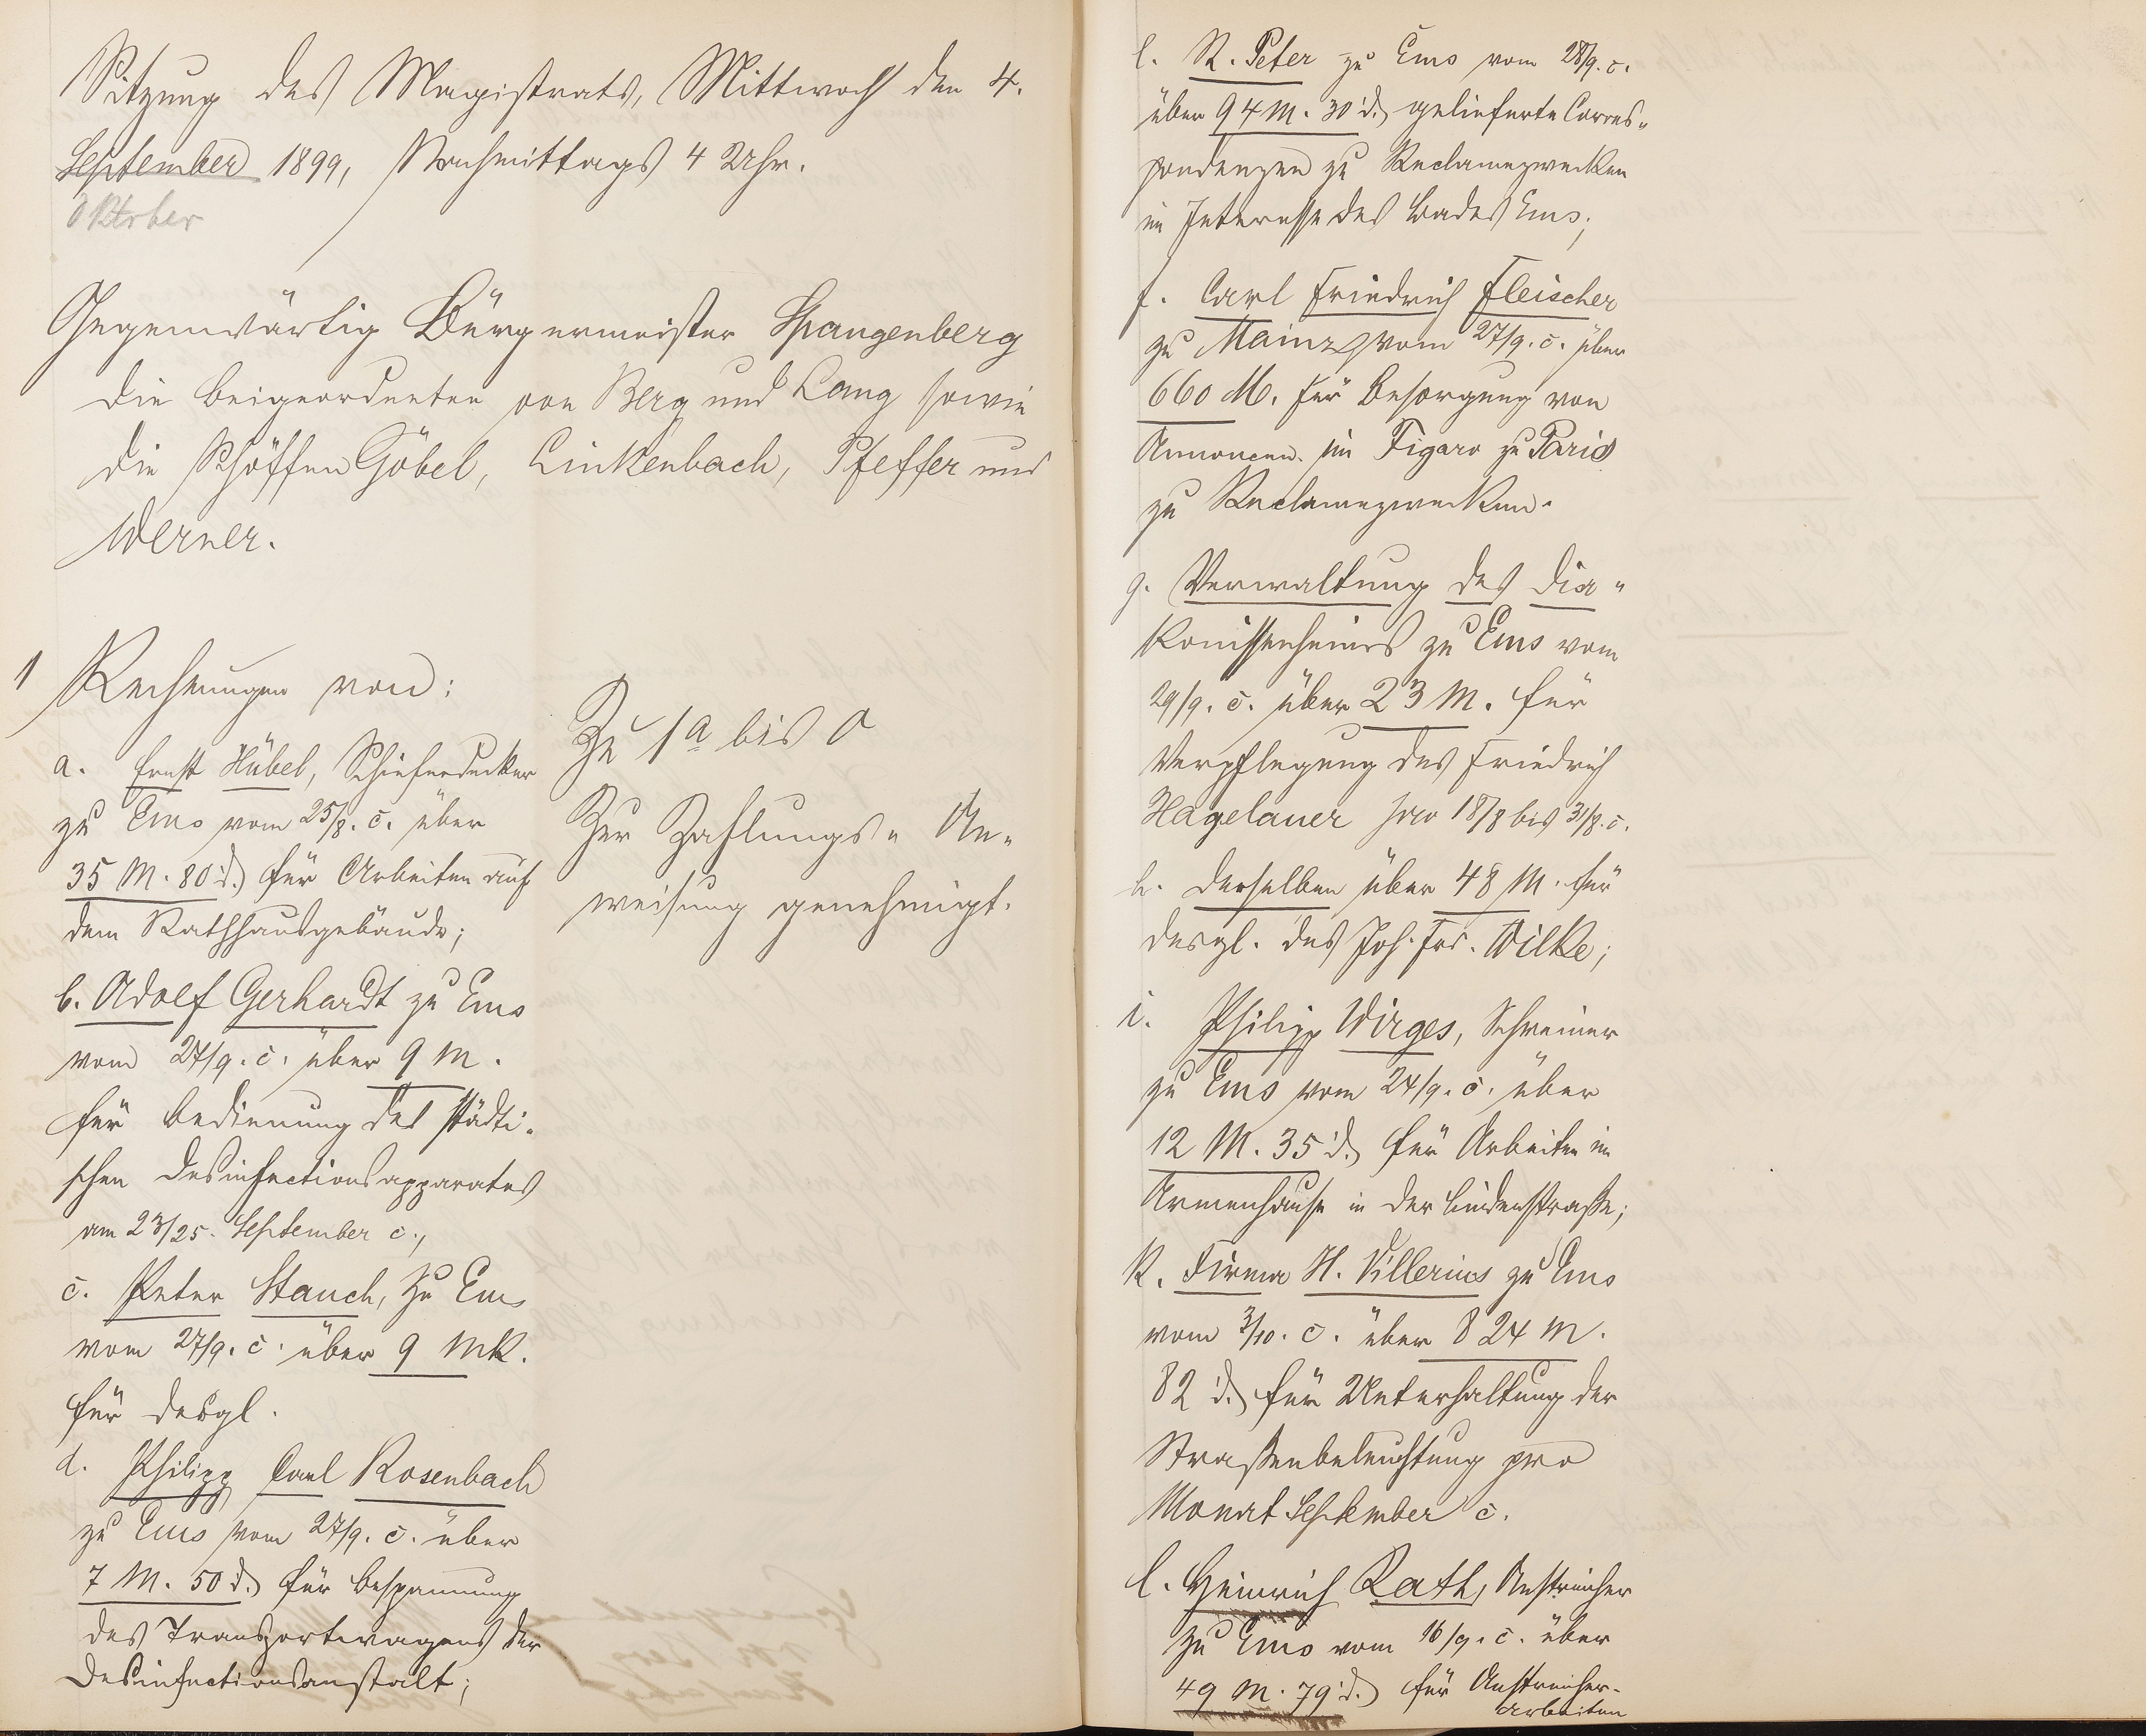 Sitzung des Magistrats, Mittwoch den 4.
September 1899, Nachmittags 4 Uhr.
Oktober
Gegenwärtig Bürgermeister Spangenberg
die Beigeordneten von Berg und Lang sowie
die Schöffen Göbel, Linkenbach, Pfeffer und
Werner.
1 Rechnungen von:
a. Ernst Hübel, Schieferdecker
zu Ems vom 25/8. c. über
35 M. 80 d. für Arbeiten auf
dem Rathhausgebäude;
b. Adolf Gerhardt zu Ems
vom 27/9. c. über 9 M.
für Bedienung des städti-
schen Desinfectionsapparates
am 23/25. September c.,
c. Peter Stauch, zu Ems
vom 27/9. c. über 9 Mk.
für desgl.
d. Philipp Carl Rosenbach
zu Ems vom 27/9. c. über
7 M. 50 d. für Bespannung
des Transportwagens der
Desinfectionsanstalt;
Zu 1a bis o
Zur Zahlungs- An-
weisung genehmigt.
e. R. Peter zu Ems vom 28/9. c.
über 94 M. 30 d. gelieferte Corres-
pondenzen zu Reclamezwecken
im Interesse des Bades Ems;
f. Carl Friedrich Fleischer
zu Mainz vom 27/9. c. über
660 M. für Besorgung von
Annoncen im Figaro zu Paris
zu Reclamezwecken.
g. Verwaltung des Dia-
konissenheims zu Ems vom
29/9. c. über 23 M. für
Verpflegung des Friedrich
Hagelauer pro 18/8 bis 31/8. c.
h. derselben über 48 M. für
desgl. des Joh. Jos. Wilke;
i. Philipp Wirges, Schreiner
zu Ems vom 24/9. c. über
12 M. 35 d. für Arbeiten im
Armenhause in der Lindenstraße;
k. Firma H. Villerius zu Ems
vom 3/10. c. über 824 M.
82 d. für Unterhaltung der
Straßenbeleuchtung pro
Monat September c.
l. Heinrich Rath, Anstreicher
zu Ems vom 16/9. c. über
49 M. 79 d. für Anstreicher-
arbeiten